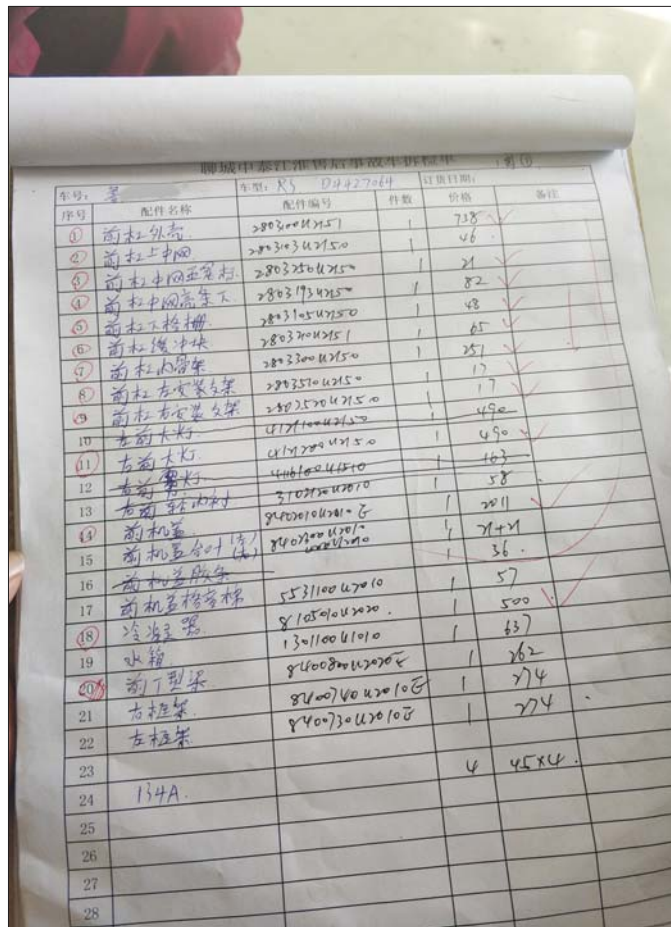 聊城中泰江淮售后事故车拆检单
车号： 车型：RS D4427064 订货日期：
序号 配件名称 配件编号 件数 价格 备注
① 前杠外壳 2803100U2151 1 738
② 前杠上中网 2803103U2150 1 46
③ 前杠中网 2803250U2150 1 21
④ 前杠中网亮条下 2803193U2150 1 82
⑤ 前杠下格栅 2803105U2150 1 48
⑥ 前杠缓冲块 1 65
⑦ 前杠内骨架 2803300U2150 1 251
⑧ 前杠左安装支架 2803510U2150 1 17
⑨ 前杠右安装支架 2803520U2150 1 17
10 左前大灯 4121100U2150 1 490
11 右前大灯 4121200U2150 1 490
12 右前雾灯 4116100U1510 1 163
13 右前 3102120U2010 1 58
14 前机盖 8402010U2010 1 2011
15 前机盖合叶(左)(右) 8402300U2010 21+21
16 前机盖胶条 1 36
17 前机盖格亭棉 5531100U2010 1 57
18 冷凝器 8105010U2020 1 500
19 水箱 1301100U1010 1 637
20 前T型梁 8400800U2020 1 262
21 右框架 8400740U2010 1 274
22 左框架 8400730U2010 1 274
23
24 134A. 4 45×4
25
26
27
28